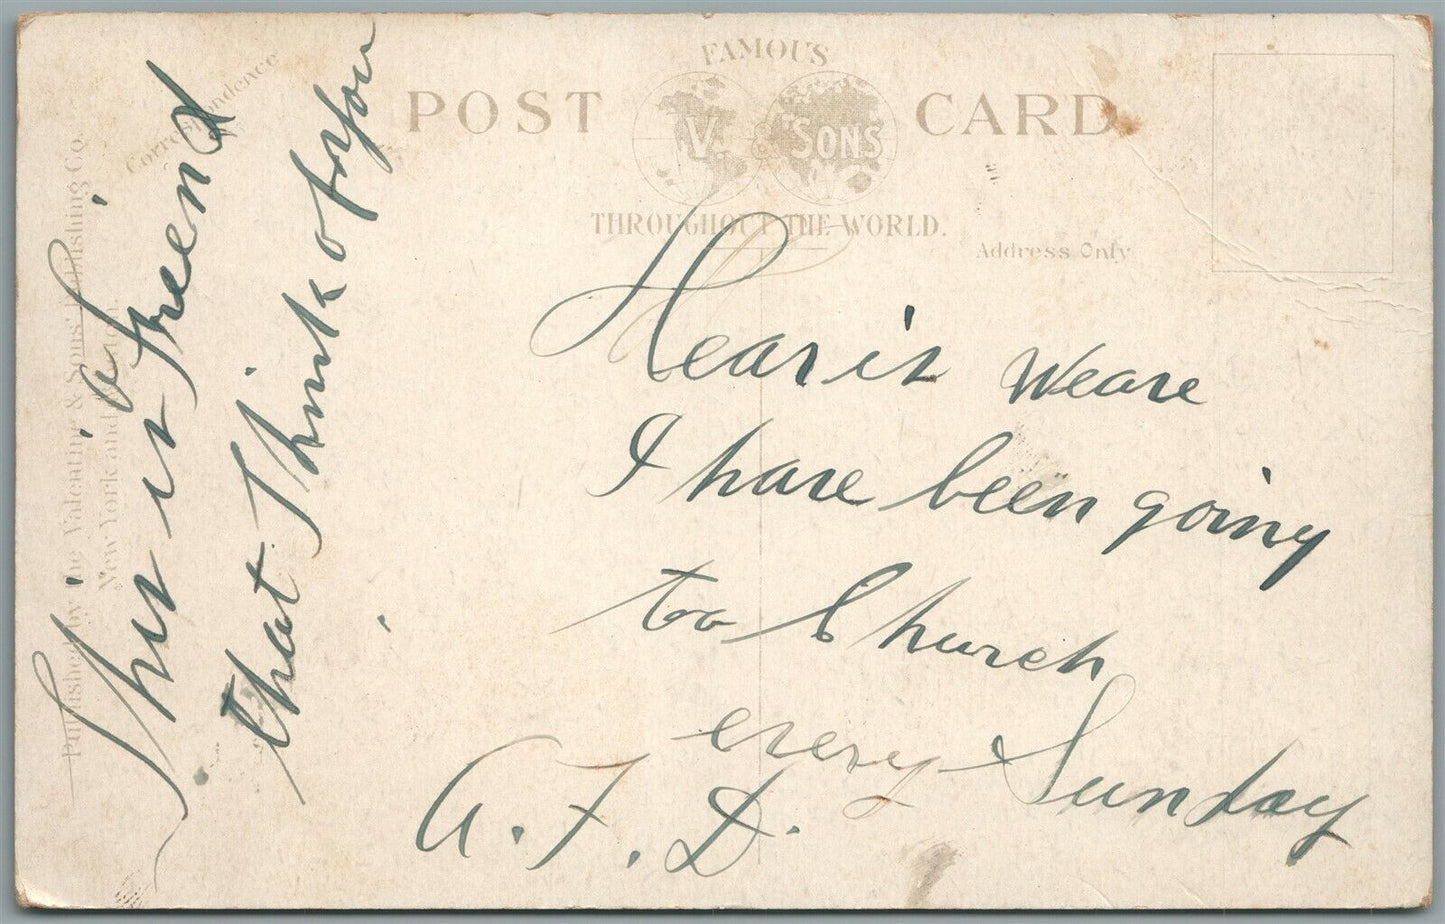 This is a freiend
that I think of or you
Correspondence
Published by The Valentine & Sons' Publishing Co.
New York and
FAMOUS
POST CARD
V. & SONS
THROUGHOUT THE WORLD.
Address Only
Hear is weare
I have been going
too Church
every Sunday
A. F. D.